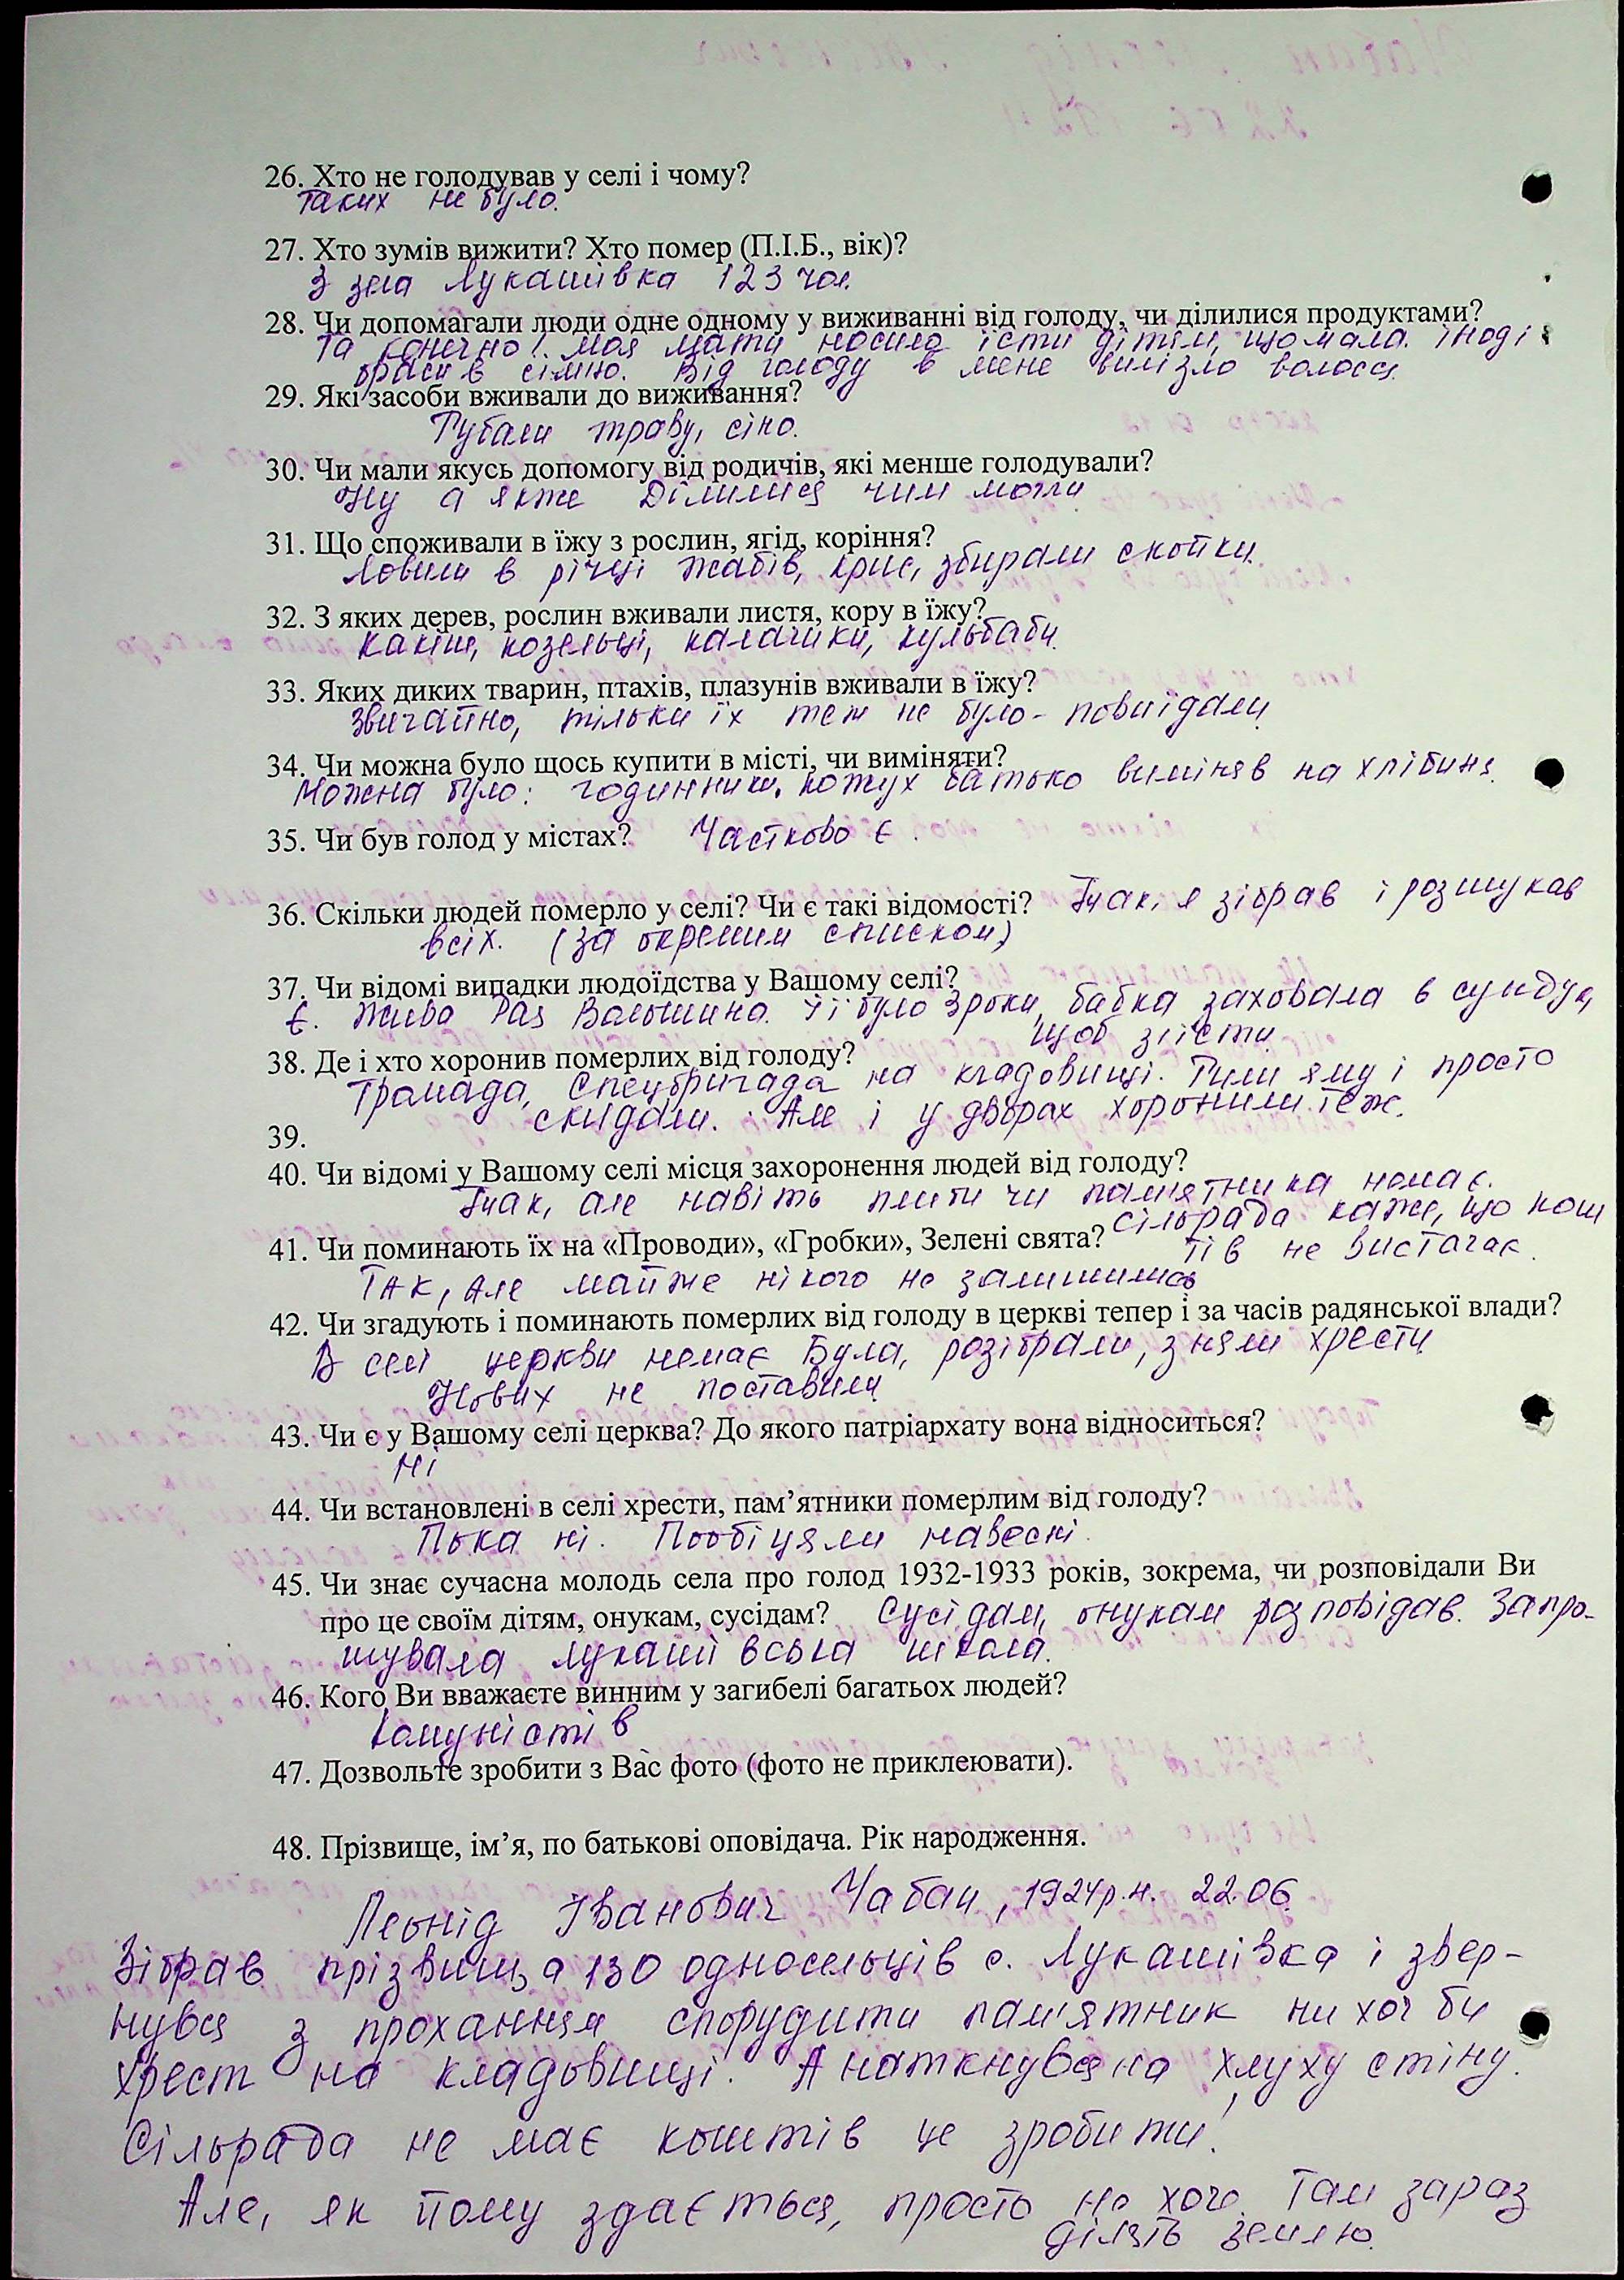 26. Хто не голодував у селі і чому?
Таких не було.
27. Хто зумів вижити? Хто помер (П.І.Б., вік)?
З села Лукашівка 123 чол.
28. Чи допомагали люди одне одному у виживанні від голоду, чи ділилися продуктами?
Та конечно! Моя мати носила їсти дітям, що мала. Іноді
брали в сімю. Від голоду в мене вилізло волосся.
29. Які засоби вживали до виживання?
Рубали траву, сіно.
30. Чи мали якусь допомогу від родичів, які менше голодували?
Ну а якже Ділилися чим могли
31. Що споживали в їжу з рослин, ягід, коріння?
Ловили в річці жабів, крис, збирали скойки.
32. З яких дерев, рослин вживали листя, кору в їжу?
козельці, калачики, кульбаби.
33. Яких диких тварин, птахів, плазунів вживали в їжу?
Звичайно, тільки їх теж не було - повиїдали
34. Чи можна було щось купити в місті, чи виміняти?
Можна було: годинники, кожух батько виміняв на хлібину.
35. Чи був голод у містах? Частково є.
36. Скільки людей померло у селі? Чи є такі відомості? Так, я зібрав і розшукав
всіх. (за окремим списком)
37. Чи відомі випадки людоїдства у Вашому селі?
Є. Жива Рая Волошина. Їй було 3 роки, бабка заховала в сундук,
щоб зїсти
38. Де і хто хоронив померлих від голоду?
Громада, спецбригада на кладовищі. Рили яму і просто
скидали. Але і у дворах хоронили теж.
39.
40. Чи відомі у Вашому селі місця захоронення людей від голоду?
Так, але навіть плити чи памятника немає.
Сільрада каже, що кош
41. Чи поминають їх на «Проводи», «Гробки», Зелені свята?
тів не вистачає.
Так, але майже нікого не залишилось
42. Чи згадують і поминають померлих від голоду в церкві тепер і за часів радянської влади?
В селі церкви немає Була, розібрали, зняли хрести
Нових не поставили
43. Чи є у Вашому селі церква? До якого патріархату вона відноситься?
Ні
44. Чи встановлені в селі хрести, пам’ятники померлим від голоду?
Пока ні. Пообіцяли навесні.
45. Чи знає сучасна молодь села про голод 1932-1933 років, зокрема, чи розповідали Ви
про це своїм дітям, онукам, сусідам? Сусідам, онукам розповідав. Запро-
шувала Лукашівська школа.
46. Кого Ви вважаєте винним у загибелі багатьох людей?
Комуністів
47. Дозвольте зробити з Вас фото (фото не приклеювати).
48. Прізвище, ім’я, по батькові оповідача. Рік народження.
Леонід Іванович Чабан, 1924р.н. 22.06.
Зібрав прізвища 130 односельців с. Лукашівка і звер-
нувся з прохання спорудити пам'ятник чи хоч би
хрест на кладовищі. А наткнувся на глуху стіну.
Сільрада не має коштів це зробити!
Але, як йому здається, просто не хоче. Там зараз
ділять землю.